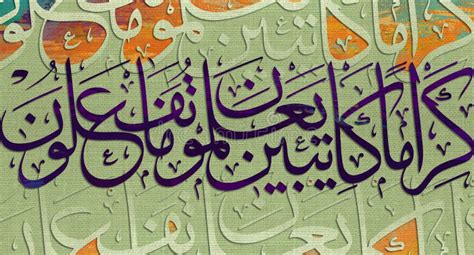 كراما كاتبين يعلمون ما تفعلون